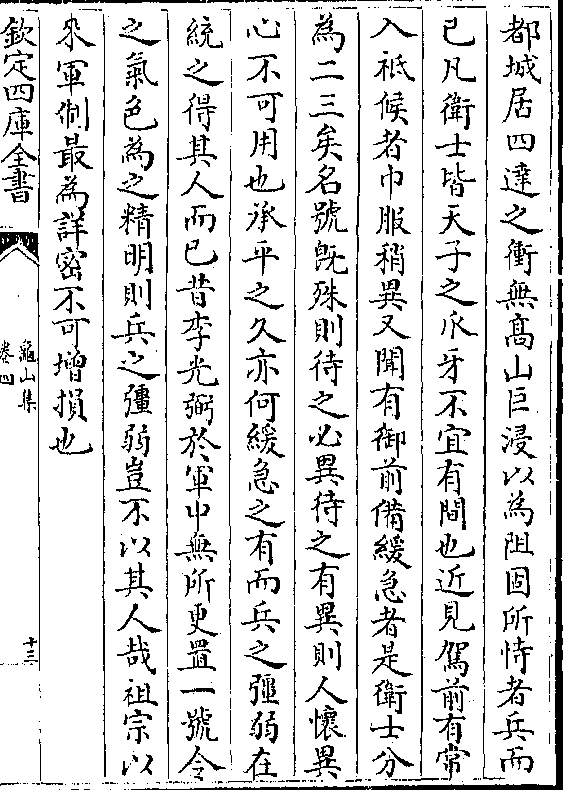 都城居四達之衝無髙山巨浸以為阻固所恃者兵而
已凡衛士皆天子之爪牙不宜有間也近見駕前有常
入祗候者巾服稍異又聞有御前備緩急者是衛士分
為二三矣名號既殊則待之必異待之有異則人懷異
心不可用也承平之久亦何緩急之有而兵之彊弱在
統之得其人而已昔李光弼於軍中無所更置一號令
之氣色為之精明則兵之彊弱豈不以其人哉祖宗以
來軍制最為詳密不可增損也
欽定四庫全書
龜山集
卷四
十三